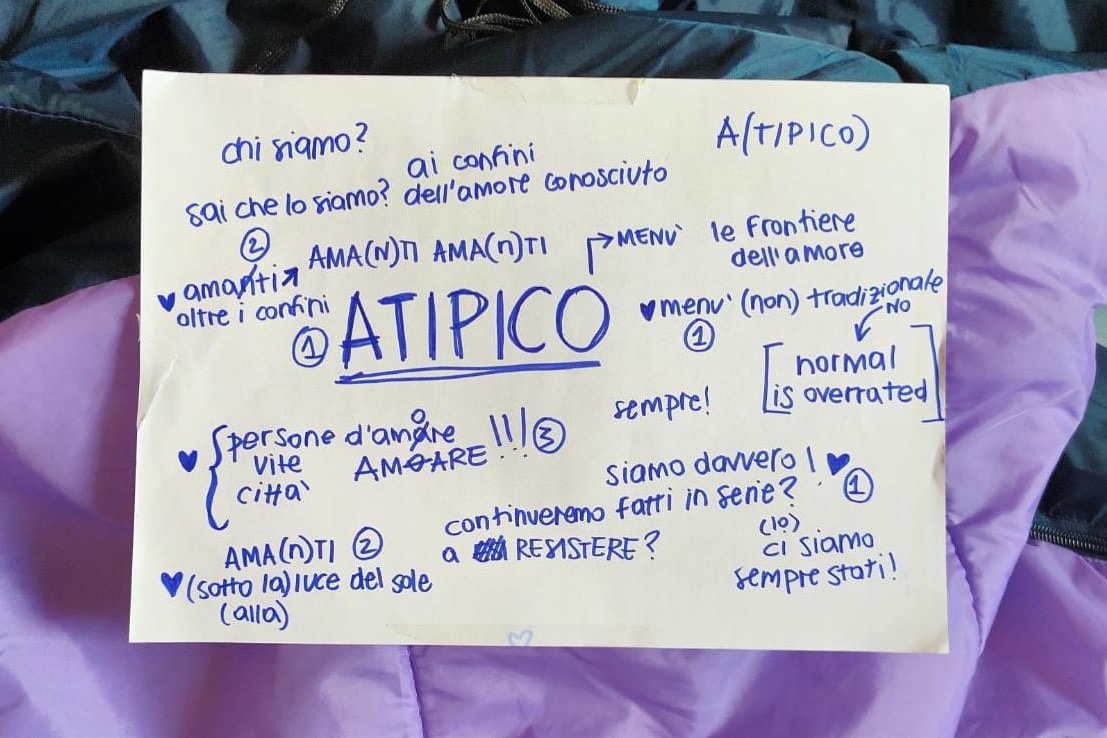 chi siamo?
A(TIPICO)
ai confini
sai che lo siamo? dell'amore conosciuto
②
AMA(N)TI AMA(n)TI
MENÙ
le frontiere
dell'amore
♥ amanti
oltre i confini
① ATIPICO
♥ menu' (non) tradizionale
①
NO
[normal
is overrated]
sempre!
♥ { persone d'amare
o
vite
città
AMOARE !!! ③
siamo davvero ! ♥
fatti in serie? ①
continueremo
a RESISTERE?
(lo)
ci siamo
sempre stati!
AMA(n)TI ②
♥ (sotto la) luce del sole
(alla)